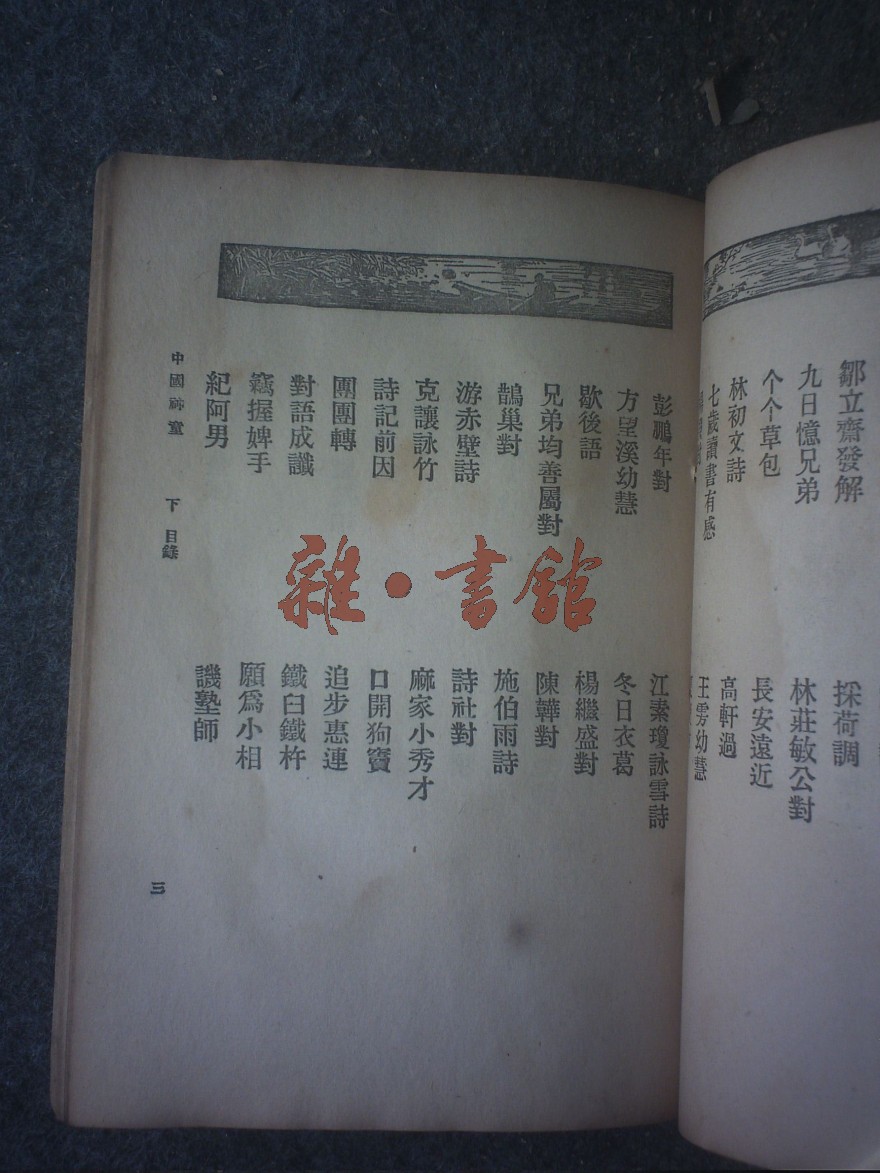 鄒立齋發解
九日憶兄弟
个个草包
林初文詩
七歲讀書有感
採荷調
林莊敏公對
長安遠近
高軒過
王雱幼慧
彭鵬年對
方望溪幼慧
歇後語
兄弟均善屬對
鵲巢對
游赤壁詩
克讓詠竹
詩記前因
團團轉
對語成讖
竊握婢手
紀阿男
江素瓊詠雪詩
冬日衣葛
楊繼盛對
陳韡對
施伯雨詩
詩社對
麻家小秀才
口開狗竇
追步惠連
鐵臼鐵杵
願爲小相
譏塾師
中國神童 下 目錄
三
雜·書館